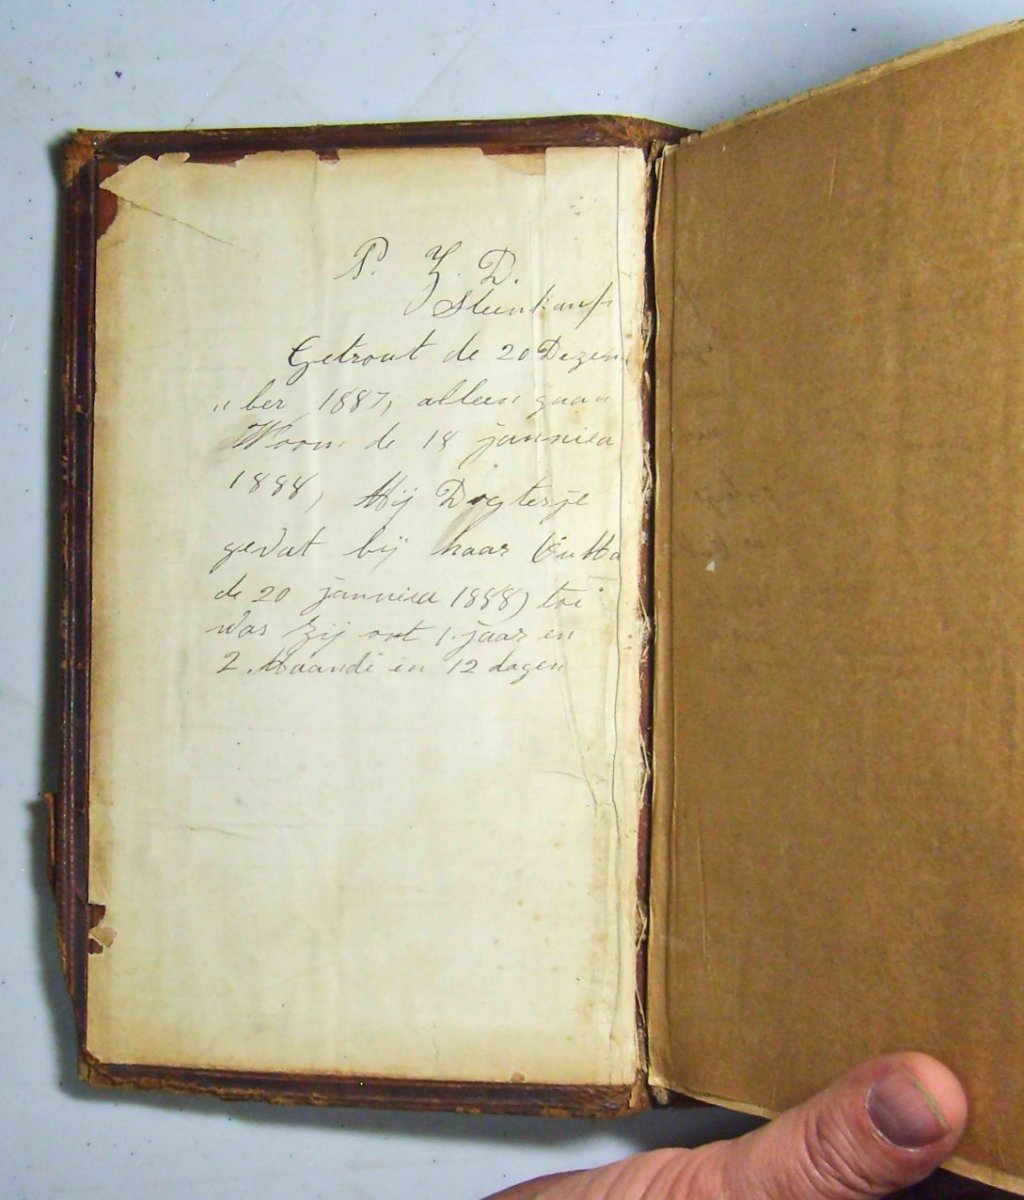 P. Z. D.
Steinkamp
Getrout de 20 Dezem
ber 1887, alleen gaan
Woon de 18 jannied
1888, Mij Dogterje
gevat bij haar
de 20 jannied 1888) toe
was zij out 1. jaar en
2. Maande en 12 dagen